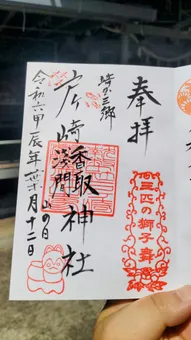 奉拝
埼玉三郷
戸ヶ崎香取浅間神社
令和六甲辰年葉月十二日
山の日
三匹の獅子舞